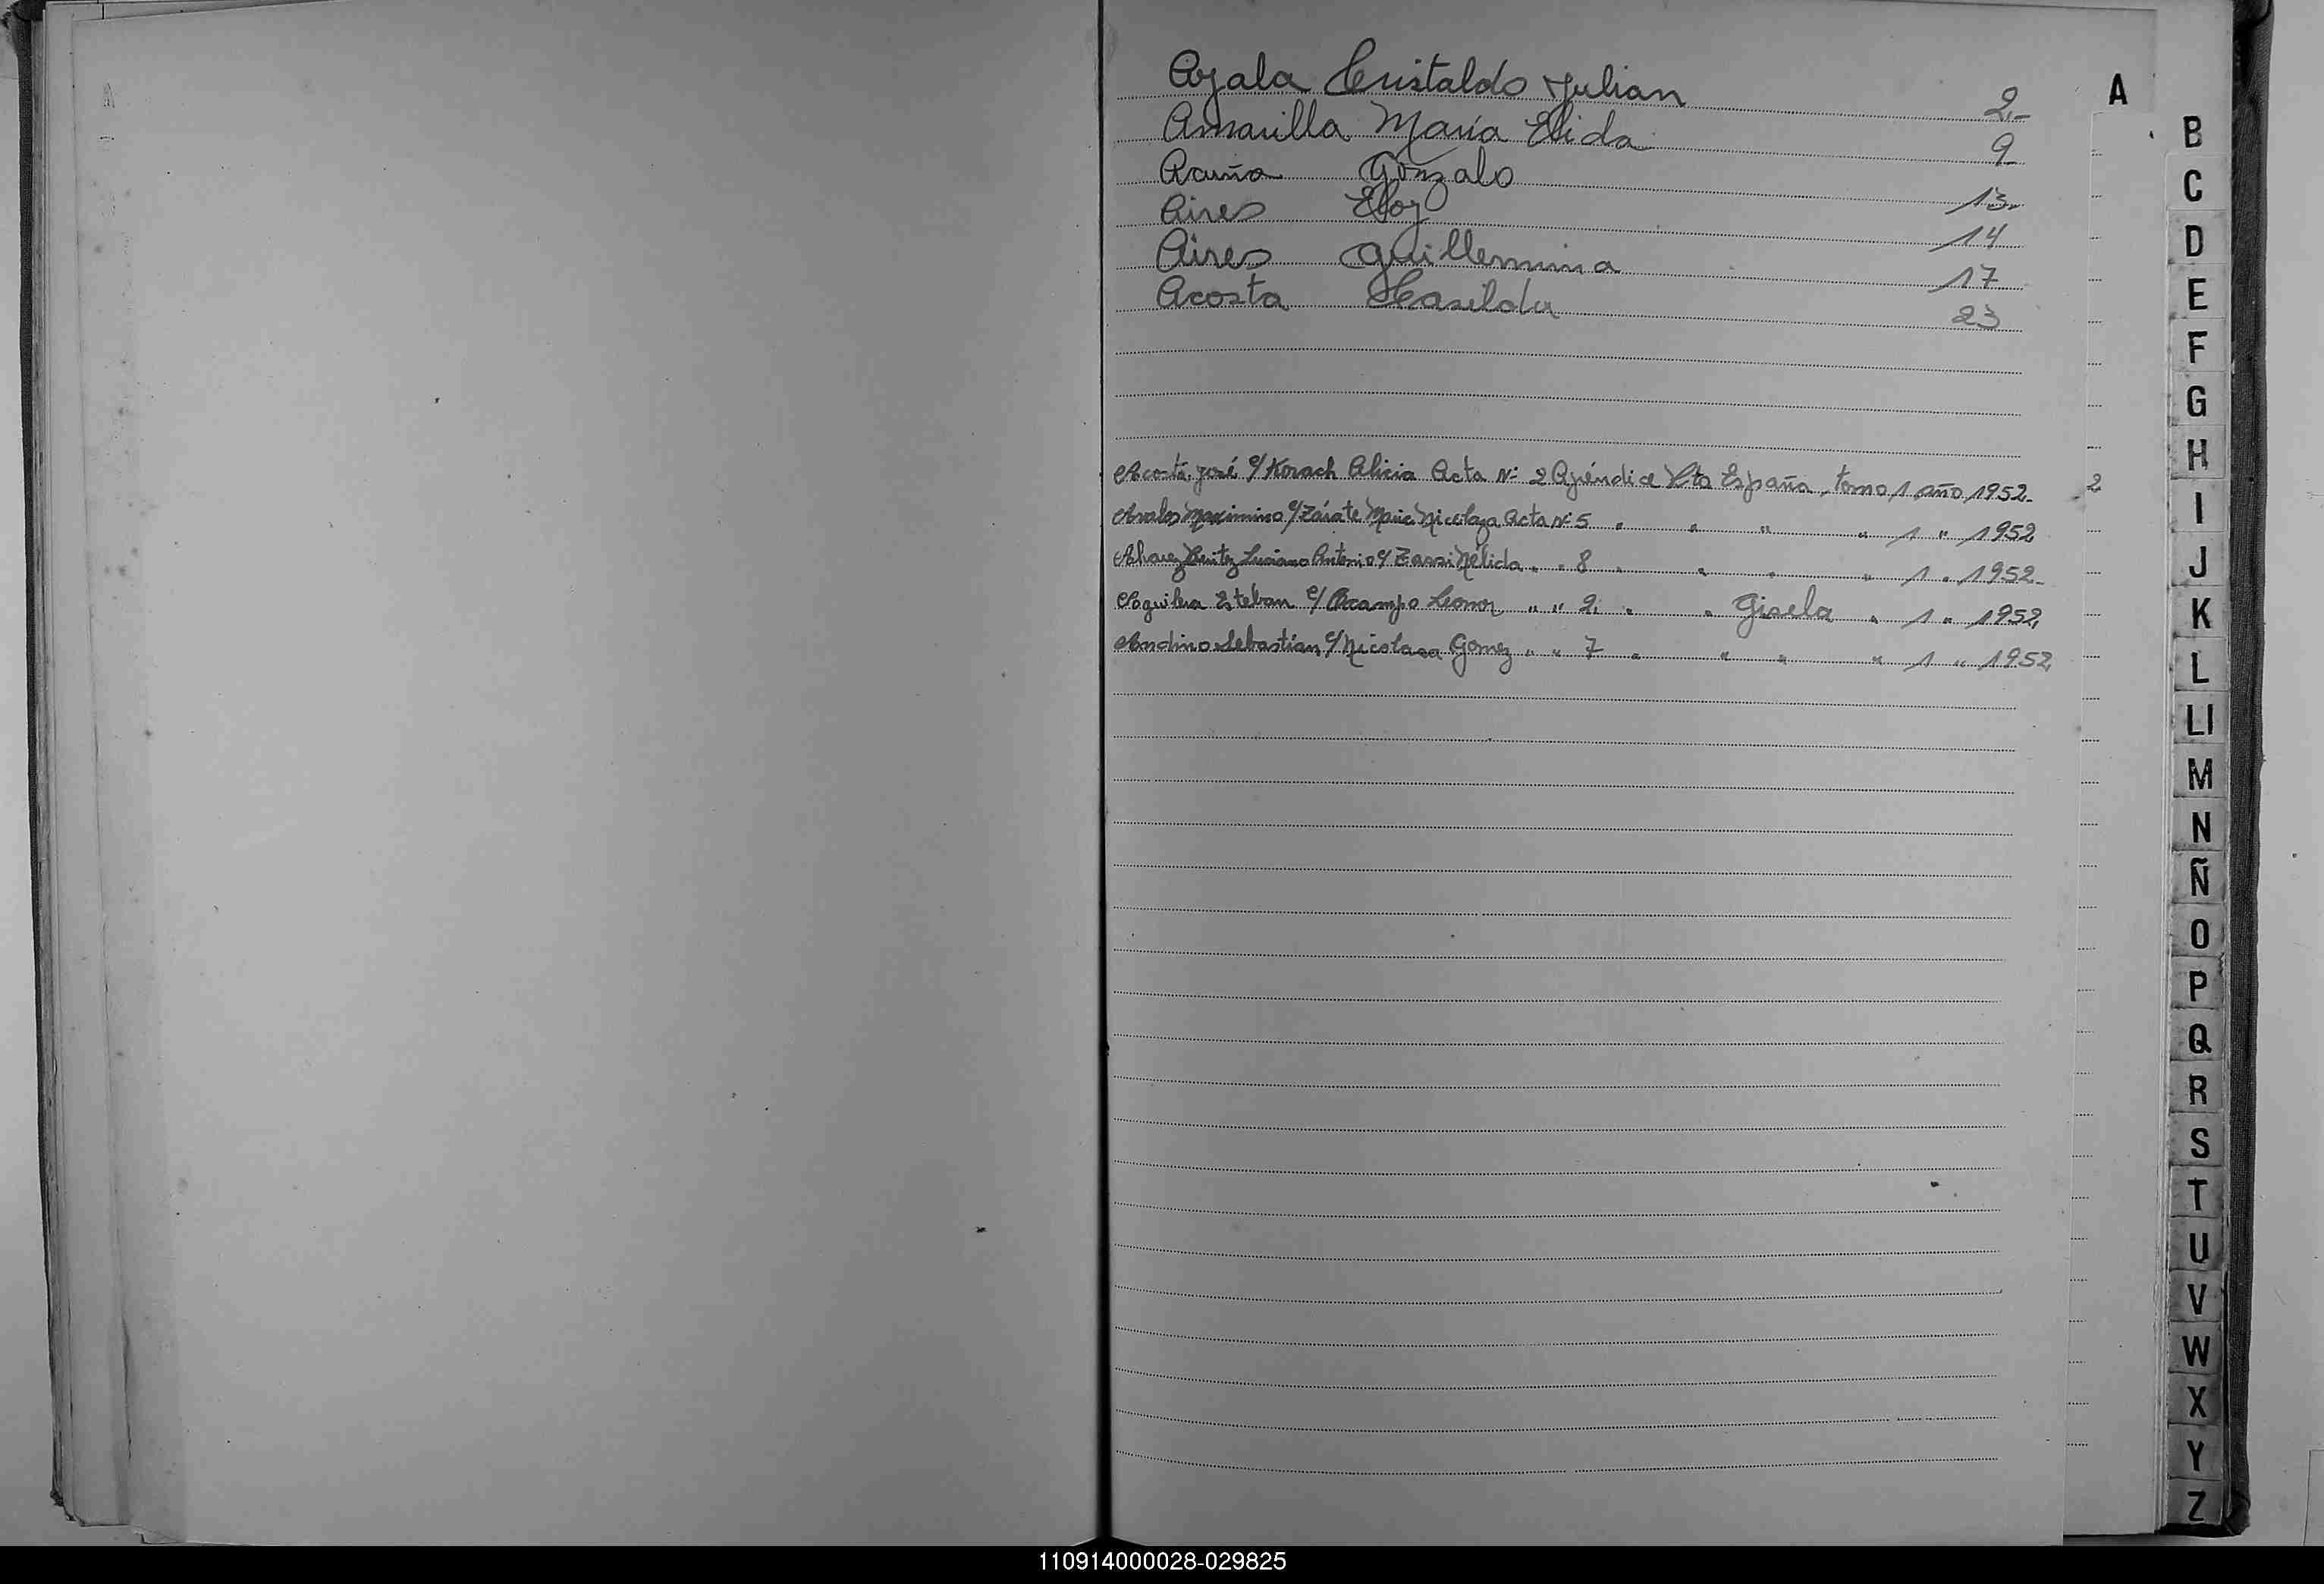 Ayala Cristaldo Julian 2.-
A
Amarilla María Elida 9
Acuña Gonzalo 13.
Aires Eloy 14
Aires Guillermina 17
Acosta Casilda 23
Acosta José c/ Korach Alicia Acta Nº 2 Apéndice Cta España, tomo 1 año 1952.
2
Avalos Maximino c/ Zárate María Nicolaza Acta Nº 5 " " " " 1 " 1952
Benitez Luciano Antonio c/ Zarri Nélida " " 8 " " " " 1 " 1952.
Aguilera Esteban c/ Ocampo Leonor " " 2. " " Gisela " 1 " 1952
Andino Sebastián c/ Nicolasa Gomez " " 7 " " " " 1 " 1952
B
C
D
E
F
G
H
I
J
K
L
Ll
M
N
Ñ
O
P
Q
R
S
T
U
V
W
X
Y
Z
110914000028-029825